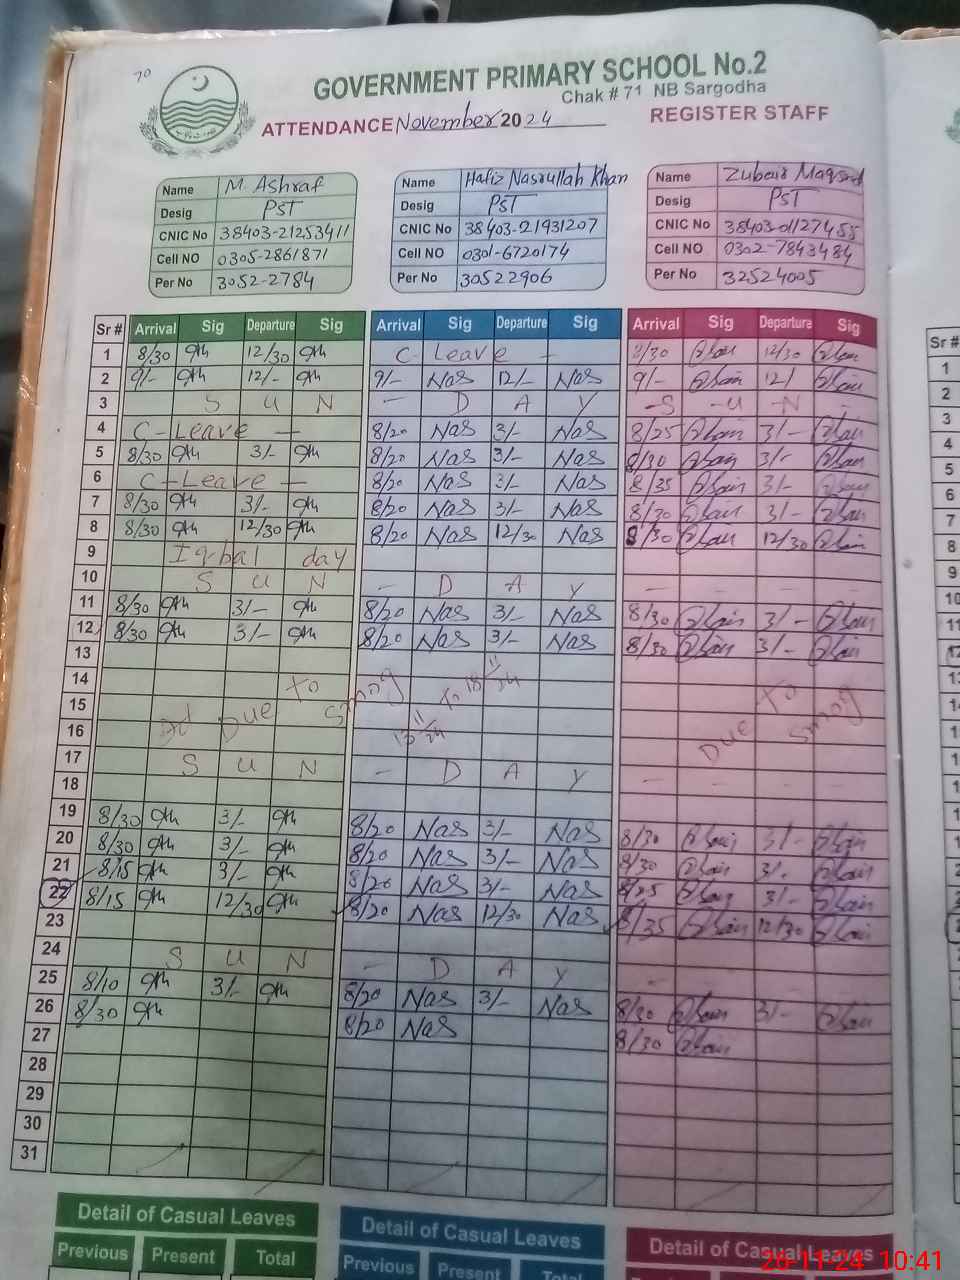 70
GOVERNMENT PRIMARY SCHOOL No.2
Chak # 71 NB Sargodha
ATTENDANCE November 2024 REGISTER STAFF
Name M. Ashraf Name Hafiz Nasrullah Khan Name Zubair Maqsod
Desig PST Desig PST Desig PST
CNIC No 38403-21253411 CNIC No 38403-21931207 CNIC No 38403-01127455
Cell NO 0305-2861871 Cell NO 0301-6720174 Cell NO 0302-7843484
Per No 3052-2784 Per No 30522906 Per No 32524005
Sr # Arrival Sig Departure Sig Arrival Sig Departure Sig Arrival Sig Departure Sig Sr #
1 8/30 12/30 C- Leave - 8/30 12/30 1
2 9/- 12/- 9/- Nas 12/- Nas 9/- 12/ 2
3 S U N - D A Y - S - U - N - 3
4 C-Leave - 8/20 Nas 3/- Nas 8/25 3/- 4
5 8/30 3/- 8/20 Nas 3/- Nas 8/30 3/- 5
6 C-Leave - 8/20 Nas 3/- Nas 8/35 3/- 6
7 8/30 3/- 8/20 Nas 3/- Nas 8/30 3/- 7
8 8/30 12/30 8/20 Nas 12/30 Nas 8/30 12/30 8
9 Iqbal day 9
10 S U N - D A Y - - - - 10
11 8/30 3/- 8/20 Nas 3/- Nas 8/30 3/- 11
12 8/30 3/- 8/20 Nas 3/- Nas 8/30 3/- 12
13
14
15 Due To Smog 13 11/24 To 18 11/24 Due To Smog
16
17 S U N - D A Y - - - -
18
19 8/30 3/- 8/20 Nas 3/- Nas 8/30 3/-
20 8/30 3/- 8/20 Nas 3/- Nas 8/30 3/-
21 8/15 3/- 8/20 Nas 3/- Nas 8/25 3/-
22 8/15 12/30 8/20 Nas 12/30 Nas 8/35 12/30
23
24 S U N - D A Y -
25 8/10 3/- 8/20 Nas 3/- Nas 8/30 3/-
26 8/30 8/20 Nas 8/30
27
28
29
30
31
Detail of Casual Leaves Detail of Casual Leaves Detail of Casual Leaves
Previous Present Total Previous Present Total
26-11-24 10:41